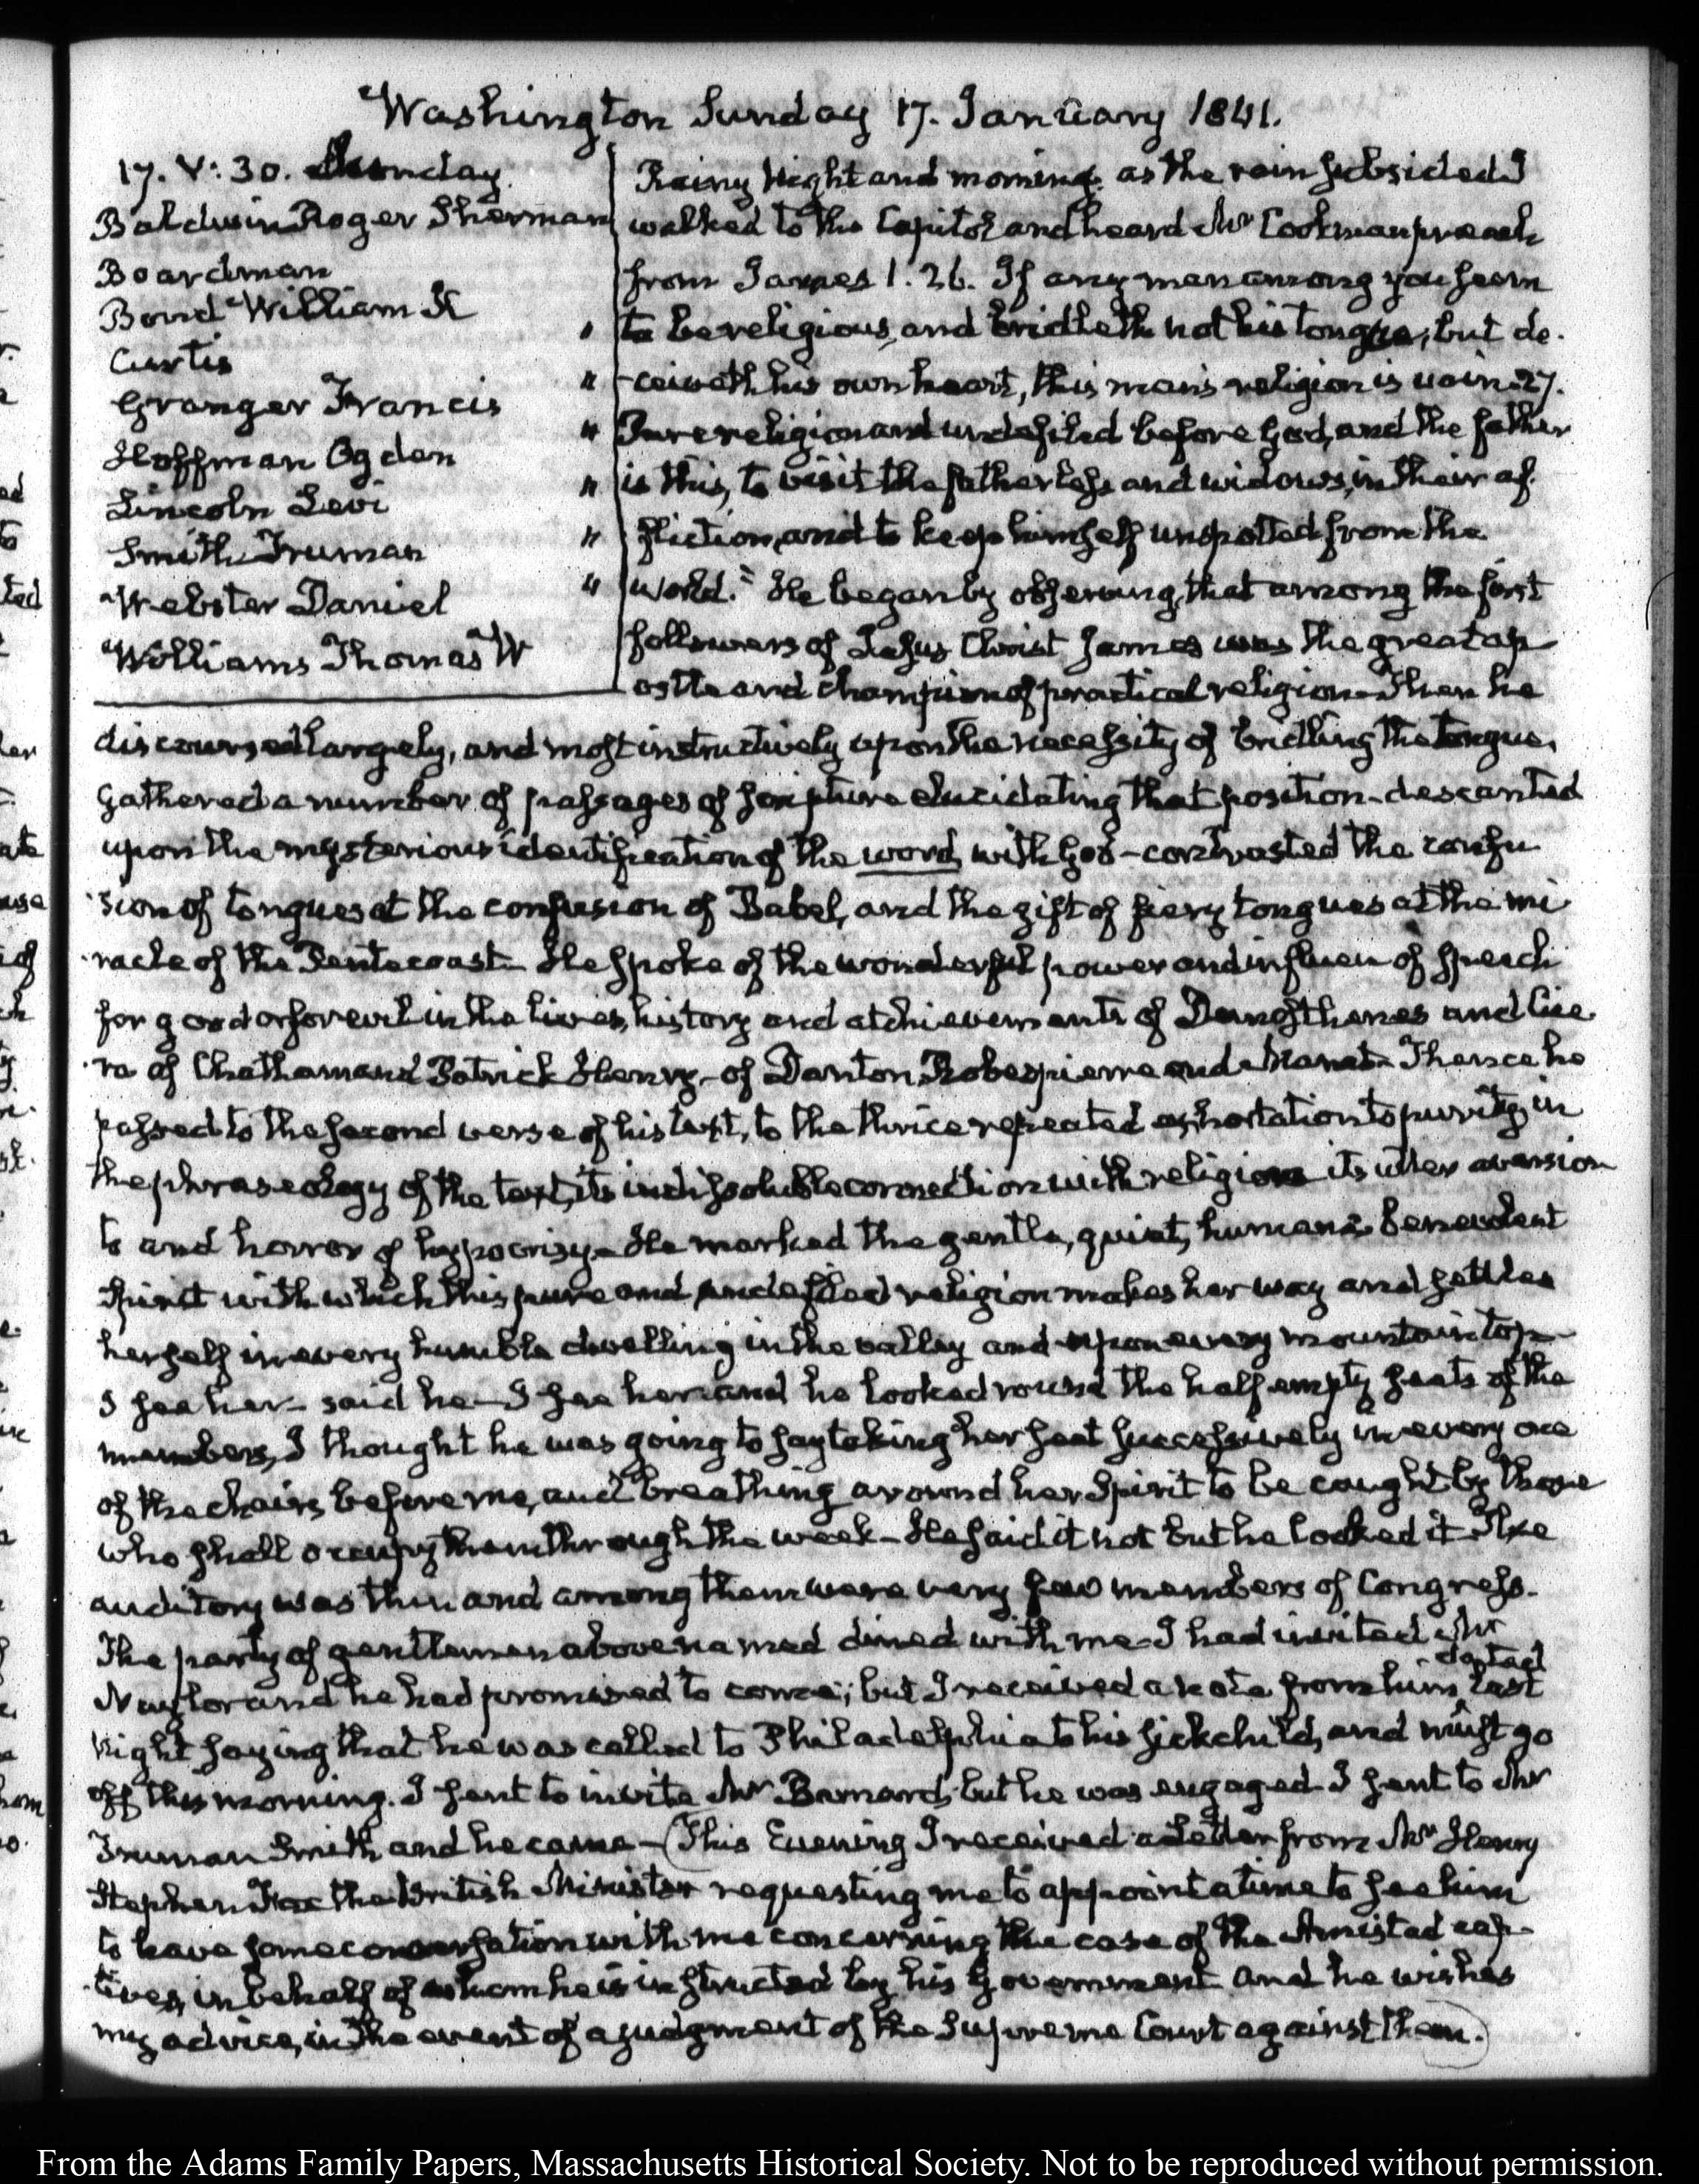 Washington Sunday 17. January 1841.
17. V: 30. Sunday.
Baldwin Roger Sherman
Boardman
Bond William K "
Curtis "
Granger Francis "
Hoffman Ogden "
Lincoln Levi "
Smith Truman "
Webster Daniel
Williams Thomas W
Rainy Night and morning. as the rain subsided I
walked to the Capitol and heard Mr Cookman preach
from James 1. 26. If any man among you seem
to be religious, and bridleth not his tongue, but de-
-ceiveth his own heart, this man's religion is vain. 27.
Pure religion and undefiled before God, and the father
is this, to visit the fatherless and widows, in their af-
fliction, and to keep himself unspotted from the
world." He began by observing, that among the first
followers of Jesus Christ James was the great ap
ostle and champion of practical religion. Then he
discoursed largely, and most instructively upon the necessity of bridling the tongue.
Gathered a number of passages of Scripture elucidating that position - descanted
upon the mysterious identification of the word, with God - contrasted the confu
sion of tongues at the confusion of Babel, and the gift of fiery tongues at the mi
racle of the Pentecoast - He spoke of the wonderful power and influen of speech
for good or for evil in the lives, history and atchievements of Demosthenes and Cice
ro of Chatham and Patrick Henry - of Danton Robespierre and Marat - Thence he
passed to the second verse of his text, to the thrice repeated exhortation to purity, in
the phraseology of the text, its indissoluble connection with religion its utter aversion
to and horror of hypocrisy - He marked the gentle, quiet, humane benevolent
Spirit with which this pure and undefiled religion makes her way and settles
herself in every humble dwelling in the valley and upon every mountain top -
I see her - said he - I see her and he looked round the half empty seats of the
members, I thought he was going to say taking her seat successively in every one
of the chairs before me, and breathing around her Spirit to be caught by those
who shall occupy them through the week - He said it not but he looked it - The
auditory was thin and among them were very few members of Congress.
The party of gentlemen above named dined with me - I had invited Mr
Naylor and he had promised to come; but I received a note from him dated last
Night saying that he was called to Philadelphia to his sick child, and must go
off this morning. I sent to invite Mr Barnard, but he was engaged I sent to Mr
Truman Smith and he came - (This Evening I received a letter from Mr Henry
Stephen Fox the British Minister requesting me to appoint a time to see him
to have some conversation with me concerning the case of the Amistad cap-
tives, in behalf of whom he is instructed by his Government and he wishes
my advice, in the event of a judgment of the Supreme Court against them.)
From the Adams Family Papers, Massachusetts Historical Society. Not to be reproduced without permission.